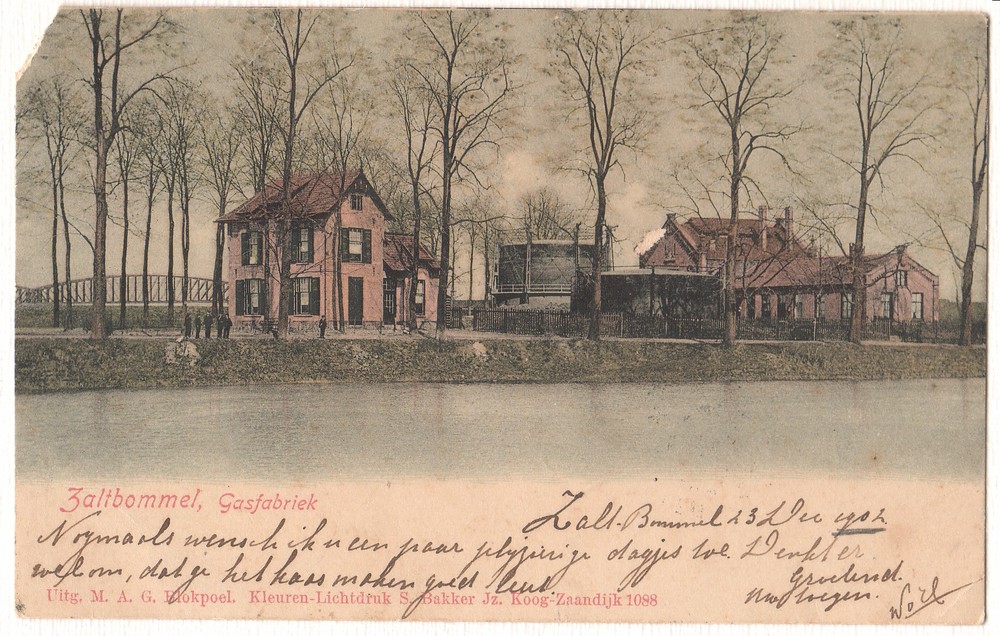 Zaltbommel, Gasfabriek
Zalt-Bommel 23 Dec 1902
Nogmaals wensch ik u een paar plezierige dagjes toe. Denkt er
wel om, dat ge het kaas maken goed leert.
Groetend.
Uitg. M. A. G. Blokpoel. Kleuren-Lichtdruk S. Bakker Jz. Koog-Zaandijk 1088